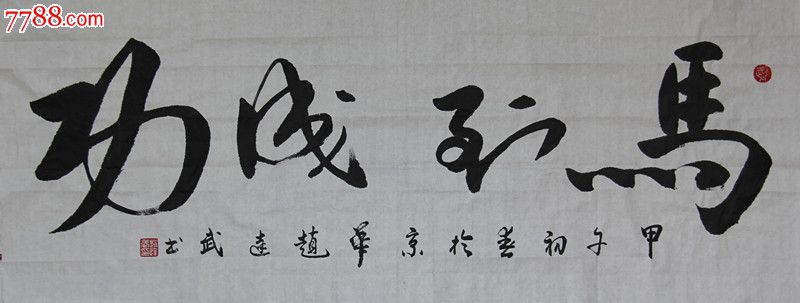 7788.com
馬到成功
甲午初春於京華趙達武书